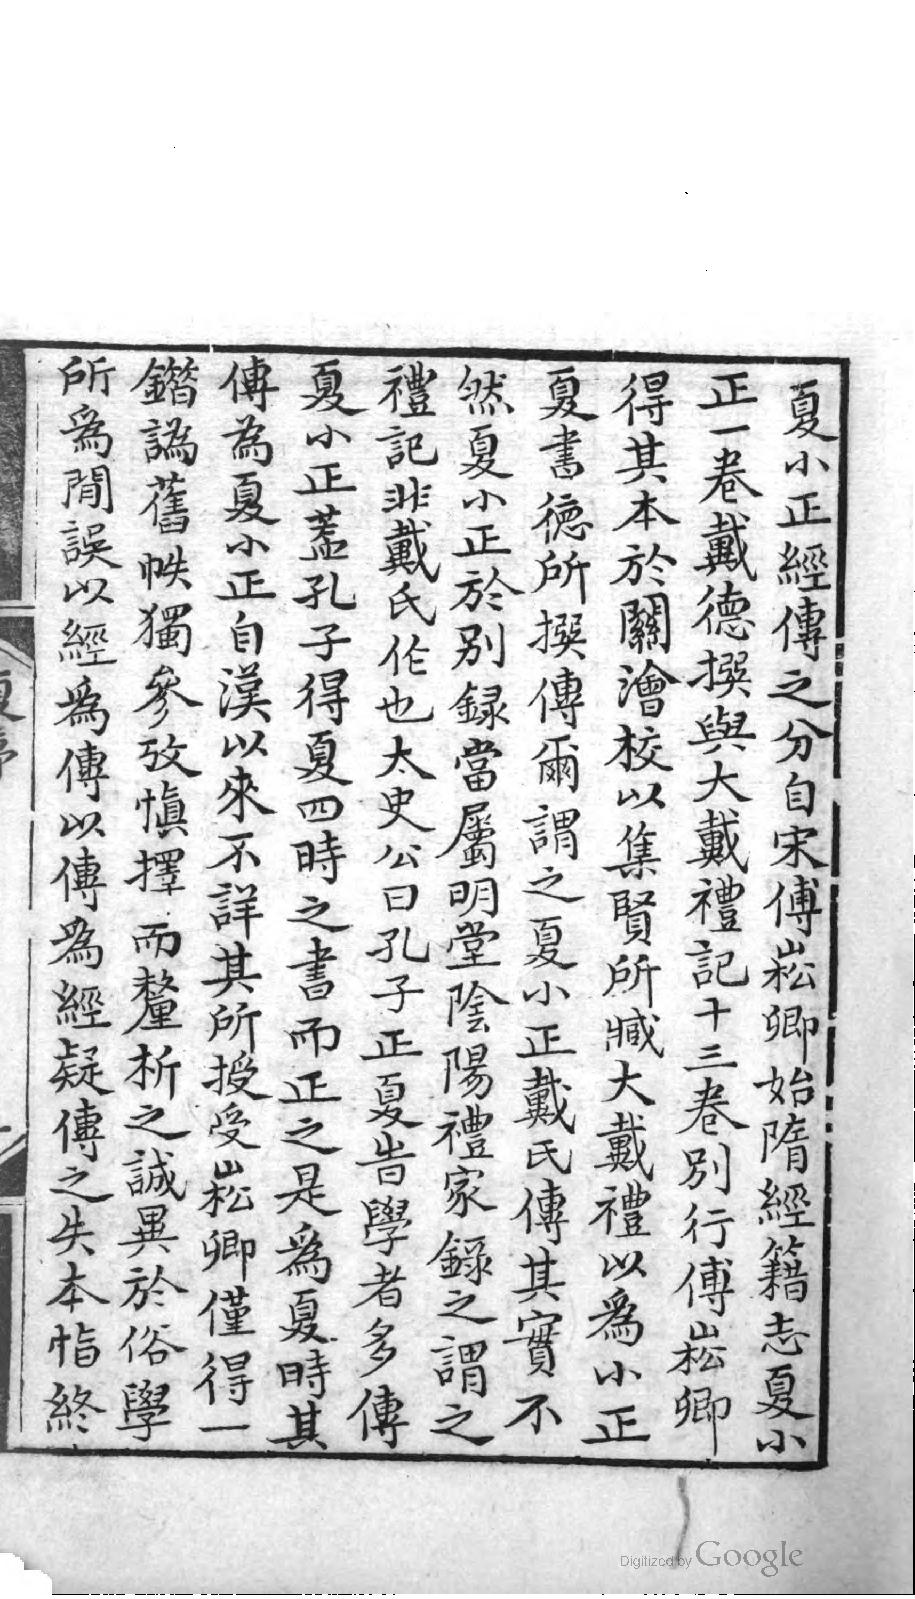 夏小正經傳之分自宋傅崧卿始隋經籍志夏小
正一卷戴德撰與大戴禮記十三卷別行傅崧卿
得其本於關澮校以集賢所臧大戴禮以爲小正
夏書德所撰傳爾謂之夏小正戴氏傳其實不
然夏小正於别録當屬明堂陰陽禮家錄之謂之
禮記非戴氏作也太史公曰孔子正夏告學者多傳
夏小正葢孔子得夏四時之書而正之是爲夏時其
傳為夏小正自漢以來不詳其所授受崧卿僅得一
鐕譌舊帙獨參攷愼擇而釐析之誠異於俗學
所爲閒誤以經爲傳以傳爲經疑傳之失本恉終
Digitized by Google